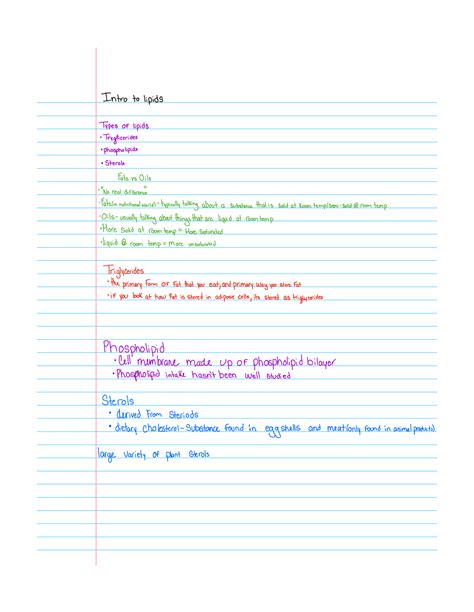 Intro to lipids
Types of lipids
• Tryglicerides
• phospholipids
• Sterols
Fats vs Oils
• "No real difference"
• Fats (in nutritional world) - typically talking about a substance that is solid at room temp/semi-solid @ room temp
• Oils - usually talking about things that are liquid at room temp
• More solid at room temp = more saturated
• liquid @ room temp = more unsaturated
Triglycerides
• the primary form of fat that you eat, and primary way you store fat
• if you look at how fat is stored in adipose cells, its stored as triglycerides
Phospholipid
• Cell membrane made up of phospholipid bilayer
• Phospholipid intake hasn't been well studied
Sterols
• derived from Steriods
• dietary cholesterol - Substance found in eggshells and meat (only found in animal products)
large variety of plant Sterols